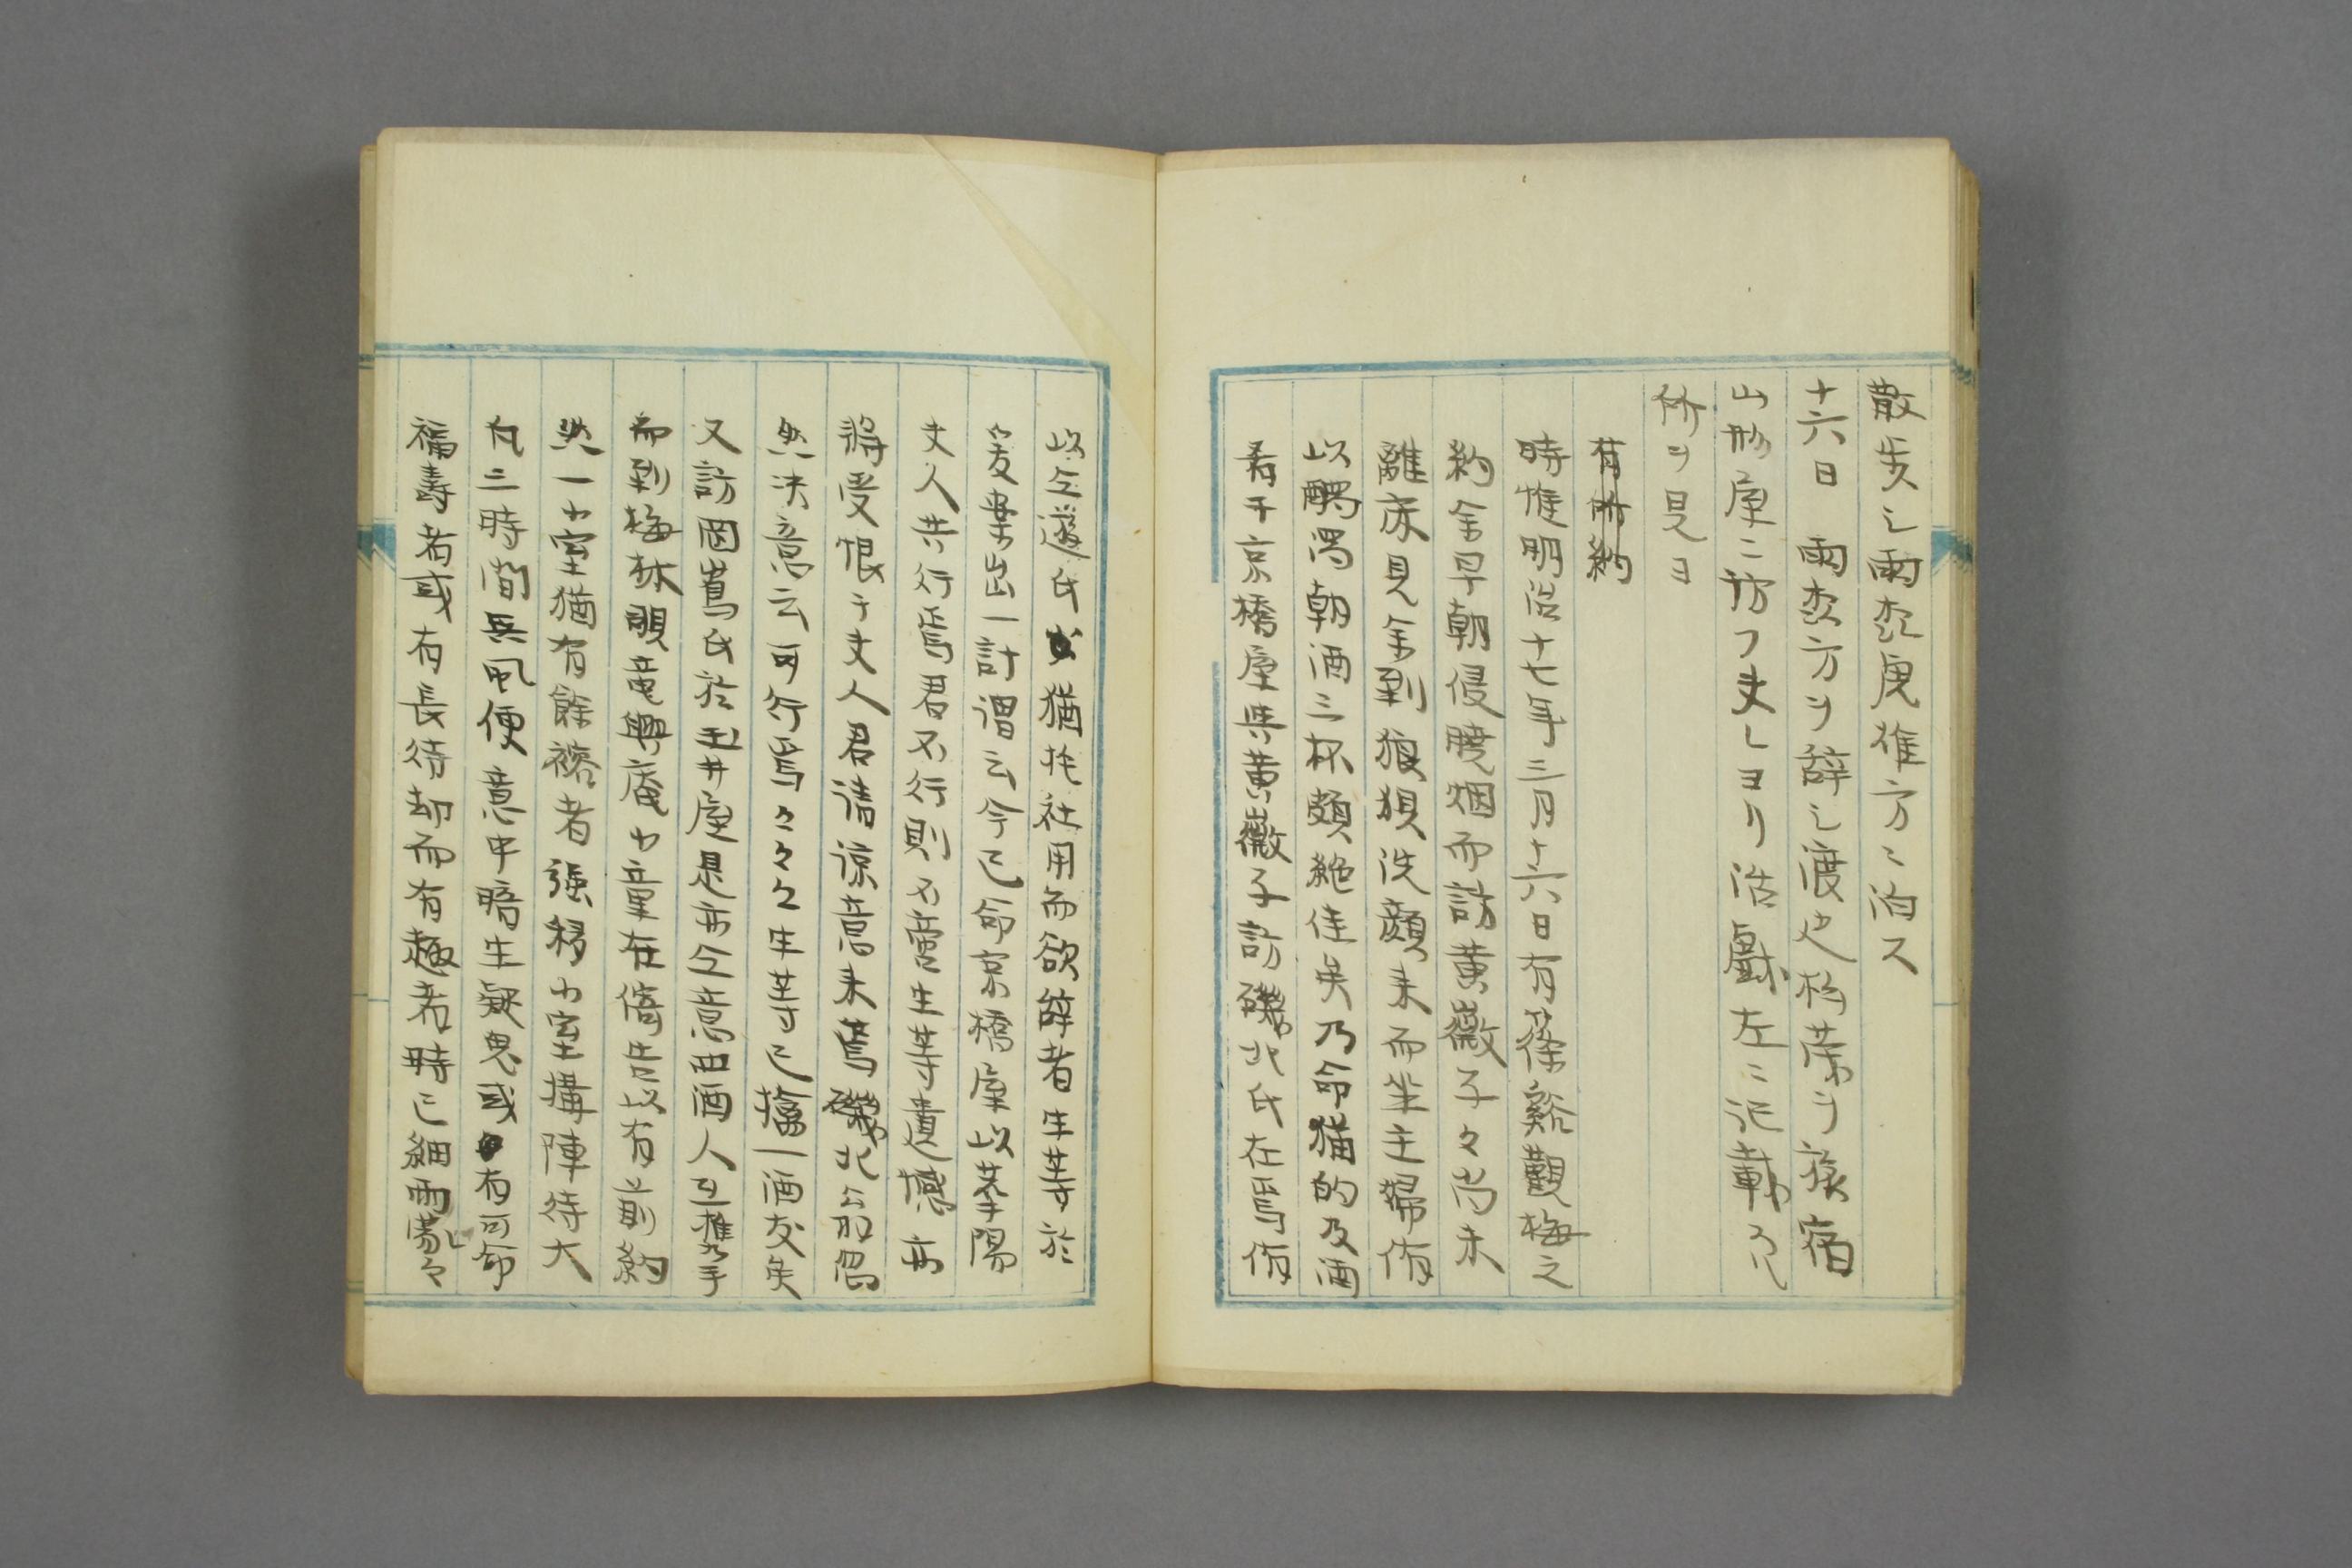 散歩シ雨森庚雅方ニ泊ス
十六日 雨森方ヲ辞シ渡辺楠蔕ヲ旅宿
山形屋ニ訪フ夫レヨリ活劇左ニ記載スル
所ヲ見ヨ
有所約
時惟明治十七年三月十六日有篠谿觀梅之
約余早朝侵曉烟而訪黄薇子々尚未
離床見余到狼狽洗顔来而坐主婦侑
以觴湯朝酒三杯頗絶佳矣乃命猫的及酒
肴于京橋屋与黄薇子訪磯北氏在焉侑
以仝道氏猶托社用而欲辞者生等於
爰案出一計謂云今已命京橋屋以挙陽
丈人共行焉君不行則不啻生等遺憾亦
将受恨于丈人君請諒意来焉磯北公初偶
然決意云可行焉々々々生等已擒一酒友矣
又訪岡嶌氏於玉井屋是亦仝意四酒人互携手
而到梅林覗竜興庵小童在偖告以有前約
然一小室猶有餘裕者強移小室構陣待大
凡三時間無風便意中暗生疑鬼或有可命
福壽者或有長待却而有趣者時已細雨濛々